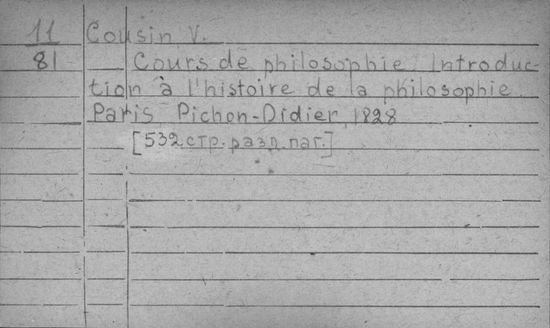 11 Cousin V.
81 Cours de philosophie. Introduc-
tion à l'histoire de la philosophie.
Paris Pichon-Didier, 1828
[532 стр. разд. паг.]